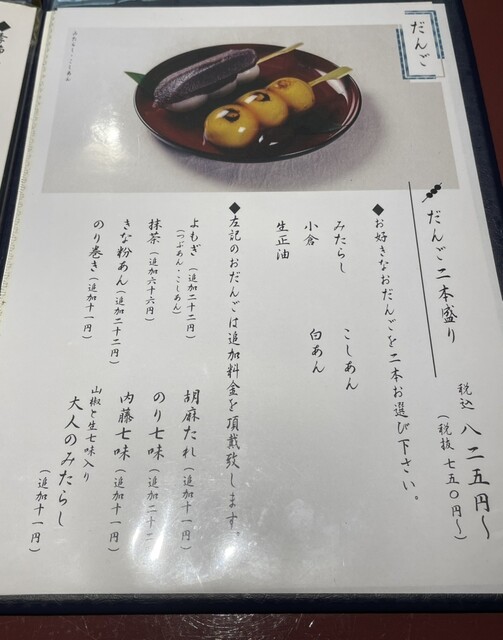 だんご
みたらし・こしあん
だんご二本盛り
税込 八二五円〜
(税抜 七五〇円〜)
◆お好きなおだんごを二本お選び下さい。
みたらし こしあん
小倉 白あん
生正油
◆左記のおだんごは追加料金を頂戴致します。
よもぎ (追加二十二円)
(つぶあん・こしあん)
抹茶 (追加六十六円)
きな粉あん (追加二十二円)
のり巻き (追加十一円)
胡麻たれ (追加十一円)
のり七味 (追加二十二
内藤七味 (追加十一円)
山椒と生七味入り
大人のみたらし
(追加十一円)